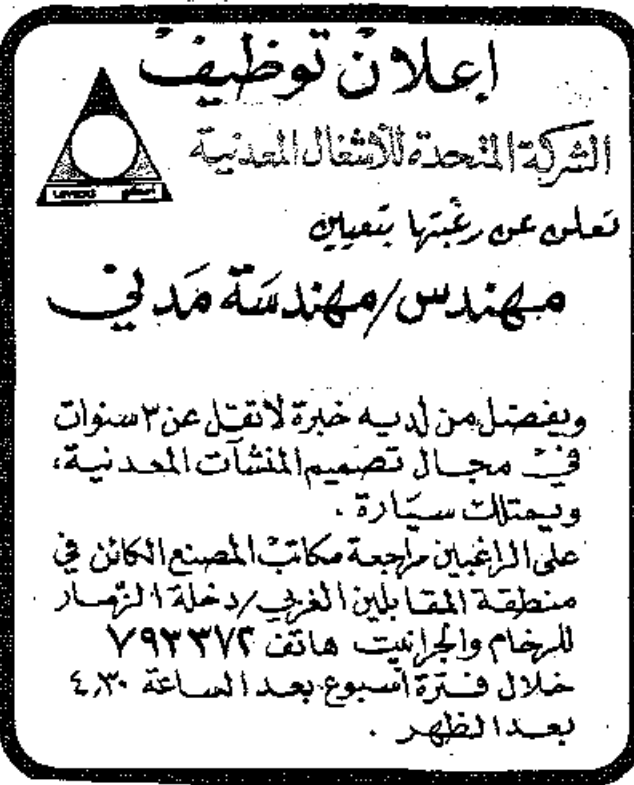 إعلان توظيف
الشركة المتحدة للأشغال المعدنية
تعلن عن رغبتها بتعيين
مهندس/مهندسة مدني
ويفضل من لديه خبرة لا تقل عن ٣ سنوات
في مجال تصميم المنشآت المعدنية،
ويمتلك سيارة .
على الراغبين مراجعة مكاتب المصنع الكائن في
منطقة المقابلين الغربي/دخلة الزهار
للرخام والجرانيت هاتف ٧٩٣٣٧٢
خلال فترة أسبوع بعد الساعة ٤,٣٠
بعد الظهر .